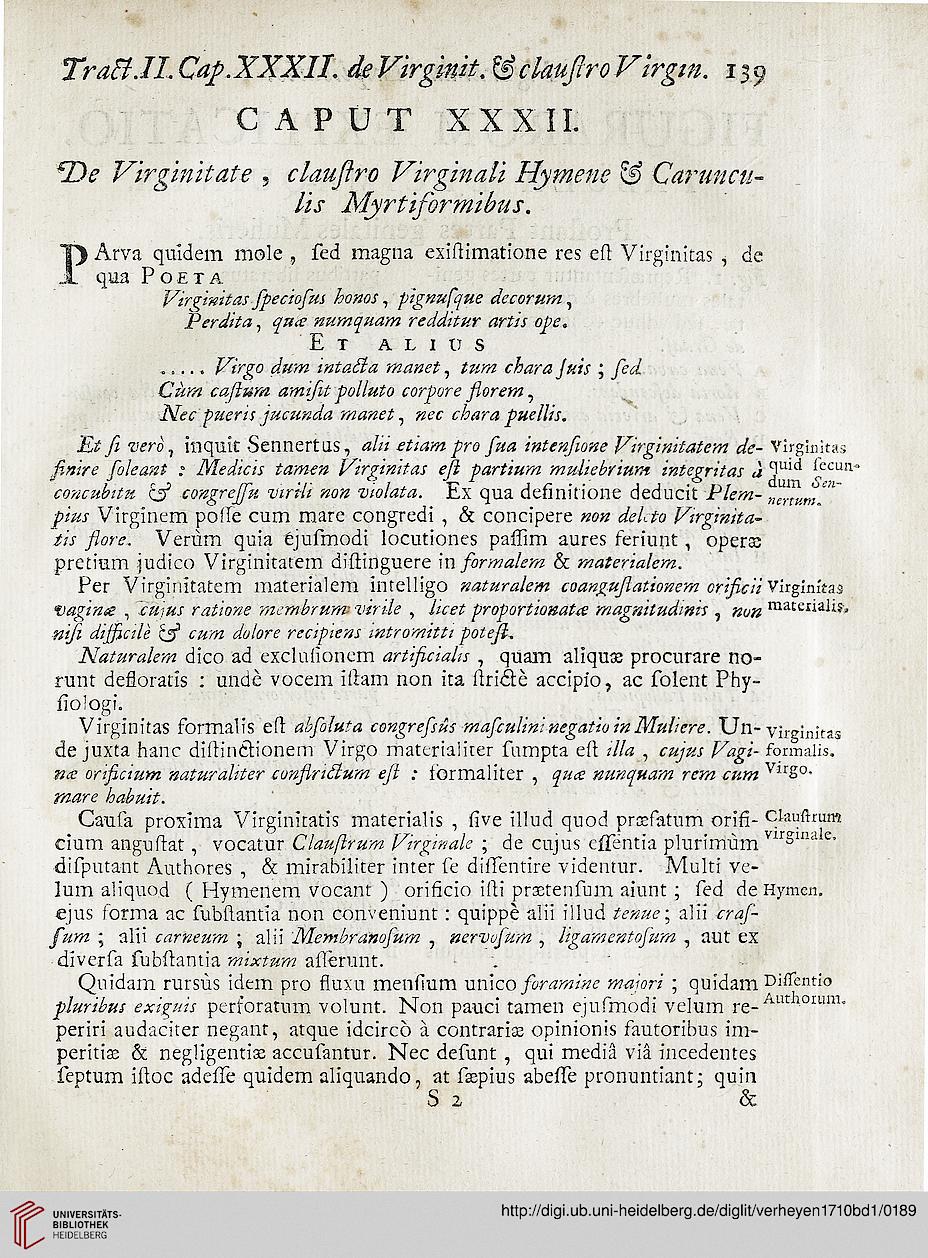 Tract.II. Cap.XXXII. de Virginit. & clauſtro Virgin. 139
CAPUT XXXII.
De Virginitate , clauſtro Virginali Hymene & Caruncu-
lis Myrtiformibus.
PArva quidem mole , ſed magna exiſtimatione res eſt Virginitas , de
qua POETA
Virginitas ſpecioſus honos , pignuſque decorum ,
Perdita , quæ numquam redditur artis ope.
ET ALIUS
..... Virgo dum intacta manet , tum chara ſuis ; ſed
Cùm caſtum amiſit polluto corpore florem ,
Nec pueris jucunda manet , nec chara puellis.
Et ſi verò, inquit Sennertus, alii etiam pro ſua intenſione Virginitatem de-
finire ſoleant : Medicis tamen Virginitas eſt partium muliebrium integritas à
concubitu & congreſſu virili non violata. Ex qua definitione deducit Plem-
pius Virginem poſſe cum mare congredi , & concipere non deleto Virginita-
tis flore. Verùm quia ejuſmodi locutiones paſſim aures feriunt , operæ
pretium judico Virginitatem diſtinguere in formalem & materialem.
Virginitas
quid ſecun-
dum Sen-
nertum.
Per Virginitatem materialem intelligo naturalem coanguſtationem orificii
vaginæ , cujus ratione membrum virile , licet proportionatæ magnitudinis , non
niſi difficilè & cum dolore recipiens intromitti poteſt.
Virginitas
materialis.
Naturalem dico ad excluſionem artificialis , quam aliquæ procurare no-
runt defloratis : undè vocem iſtam non ita ſtrictè accipio, ac ſolent Phy-
ſiologi.
Virginitas formalis eſt abſoluta congreſsûs maſculini negatio in Muliere. Un-
de juxta hanc diſtinctionem Virgo materialiter ſumpta eſt illa , cujus Vagi-
næ orificium naturaliter conſtrictum eſt : formaliter , quæ nunquam rem cum
mare habuit.
Virginitas
formalis.
Virgo.
Cauſa proxima Virginitatis materialis , ſive illud quod præfatum orifi-
cium anguſtat , vocatur Clauſtrum Virginale ; de cujus eſſentia plurimùm
diſputant Authores , & mirabiliter inter ſe diſſentire videntur. Multi ve-
lum aliquod ( Hymenem vocant ) orificio iſti prætenſum aiunt ; ſed de
ejus forma ac ſubſtantia non conveniunt : quippè alii illud tenue ; alii craſ-
ſum ; alii carneum ; alii Membranoſum , nervoſum , ligamentoſum , aut ex
diverſa ſubſtantia mixtum aſſerunt.
Clauſtrum
virginale.
Hymen.
Quidam rursùs idem pro fluxu menſium unico foramine majori ; quidam
pluribus exiguis perforatum volunt. Non pauci tamen ejuſmodi velum re-
periri audaciter negant, atque idcircò à contrariæ opinionis fautoribus im-
peritiæ & negligentiæ accuſantur. Nec deſunt , qui mediâ viâ incedentes
ſeptum iſtoc adeſſe quidem aliquando, at ſæpius abeſſe pronuntiant; quin
Diſſentio
Authorum.
S 2
&
UNIVERSITÄTS-
BIBLIOTHEK
HEIDELBERG
http://digi.ub.uni-heidelberg.de/diglit/verheyen1710bd1/0189